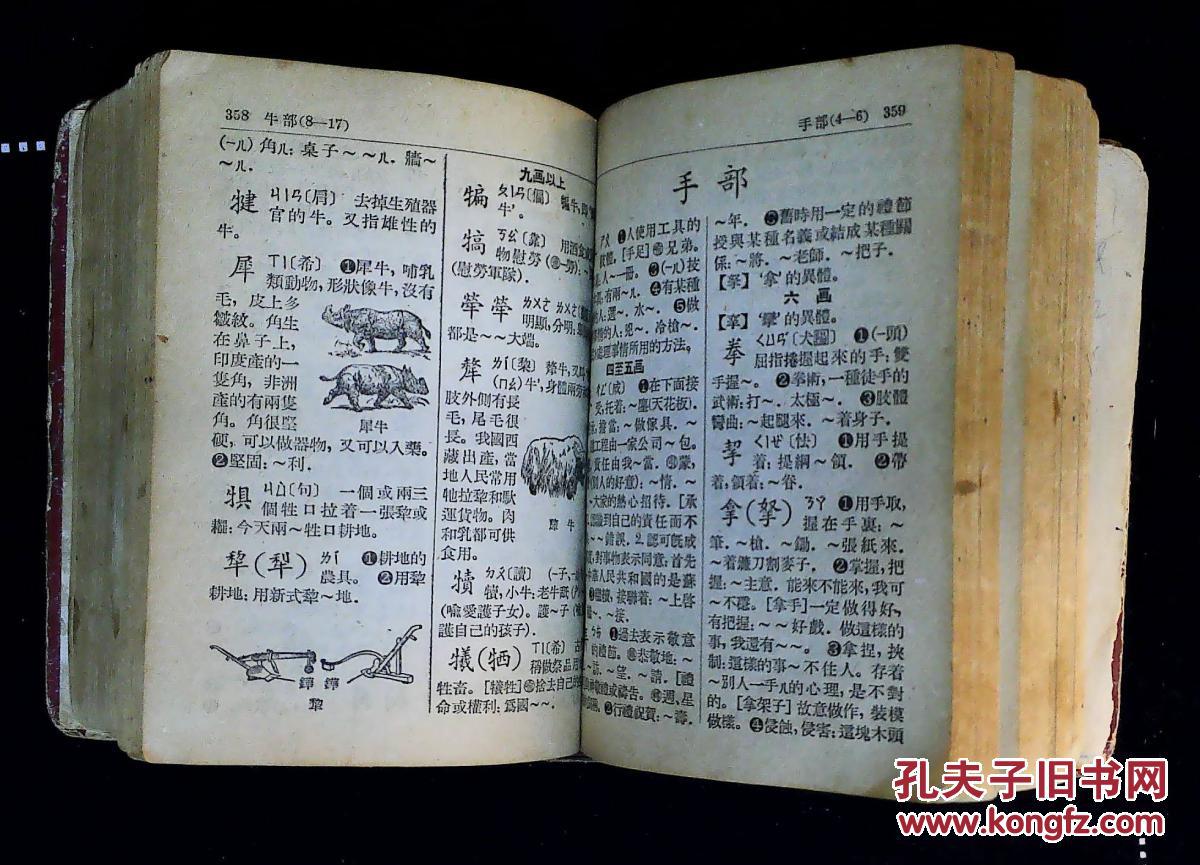 358 牛部(8—17)
(一ㄦ)角ㄦ: 桌子～～ㄦ. 牆～
～ㄦ.
犍 ㄐㄧㄢ〔肩〕 去掉生殖器
官的牛。又指雄性的
牛。
犀 ㄒㄧ〔希〕 ❶犀牛, 哺乳
類動物, 形狀像牛, 沒有
毛, 皮上多
皺紋。角生
在鼻子上,
印度產的一
隻角, 非洲
產的有兩隻
角。角很堅
犀牛
硬, 可以做器物, 又可以入藥。
❷堅固: ～利.
犋 ㄐㄩ〔句〕 一個或兩三
個牲口拉着一張犂或
耀: 今天兩～牲口耕地。
犂(犁) ㄌㄧ ❶耕地的
農具。 ❷用犂
耕地: 用新式犂～地.
鏵 鏵
犂
九画以上
犏 ㄆㄧㄢ〔偏〕 犏牛,
牛'。
犒 ㄎㄠ〔靠〕 用酒
物慰勞
(慰勞軍隊).
犖 犖 ㄌㄨㄛ
明顯, 分明:
都是～～大端。
犛 ㄌㄧ〔黎〕 犛牛, 又
(ㄇㄠ)牛', 身體兩
肢外側有長
毛, 尾毛很
長。我國西
藏出產, 當
地人民常用
牠拉犂和馱
運貨物。肉
和乳都可供
食用。
犛牛
犢 ㄉㄨ〔讀〕
犢, 小牛: 老牛舐
(喻愛護子女)。護～子
護自己的孩子).
犧(牺) ㄒㄧ〔希〕 古
稱做祭品用
牲畜。[犧牲] 捨去自己的
命或權利: 爲國～～.
手部(4—6) 359
手部
❶人使用工具的
肢體。[手足] 兄弟。
人～一冊。❸(一ㄦ)技
有兩～ㄦ. ❹有某種
人: 選～、水～. ❺做
的人: 兇～、冷槍～.
處理事情所用的方法,
四至五画
〔成〕 ❶在下面接
托着: ～塵(天花板).
擔當: ～做傢具。～
工程由一家公司～包.
責任由我～當. 蒙,
人的好意): ～情. ～
大家的熱心招待. [承
認識到自己的責任而不
～～錯誤. 2. 認可既成
對事物表示同意: 首先
人民共和國的是蘇
繼續, 接聯着: ～上啓
～接.
❶過去表示敬意
的禮節。 恭敬地: ～
～望. ～請. [禮
禮或禱告。 週, 星
❷行禮祝賀: ～壽.
～年. 舊時用一定的禮節
授與某種名義或結成某種關
係: ～將. ～老師. ～把子.
【拏】 '拿'的異體。
六画
拳 ㄑㄩㄢ ❶(一頭)
屈指捲握起來的手: 雙
手握～. ❷拳術, 一種徒手的
武術: 打～. 太極～. ❸肢體
彎曲: ～起腿來. ～着身子.
挈 ㄑㄧㄝ〔怯〕 ❶用手提
着: 提綱～領. ❷帶
着, 領着: ～眷.
拿(拏) ㄋㄚ ❶用手取,
握在手裏: ～
筆. ～槍. ～鋤. ～張紙來.
～着鐮刀割麥子. ❷掌握, 把
握: ～主意. 能來不能來, 我可
～不穩. [拿手] 一定做得好,
有把握: ～～好戲. 做這樣的
事, 我還有～～. ❸拿捏, 挾
制: 這樣的事～不住人. 存着
～別人一手ㄦ的心理, 是不對
的. [拿架子] 故意做作, 裝模
做樣。❹侵蝕, 侵害: 這塊木頭
孔夫子旧书网
www.kongfz.com